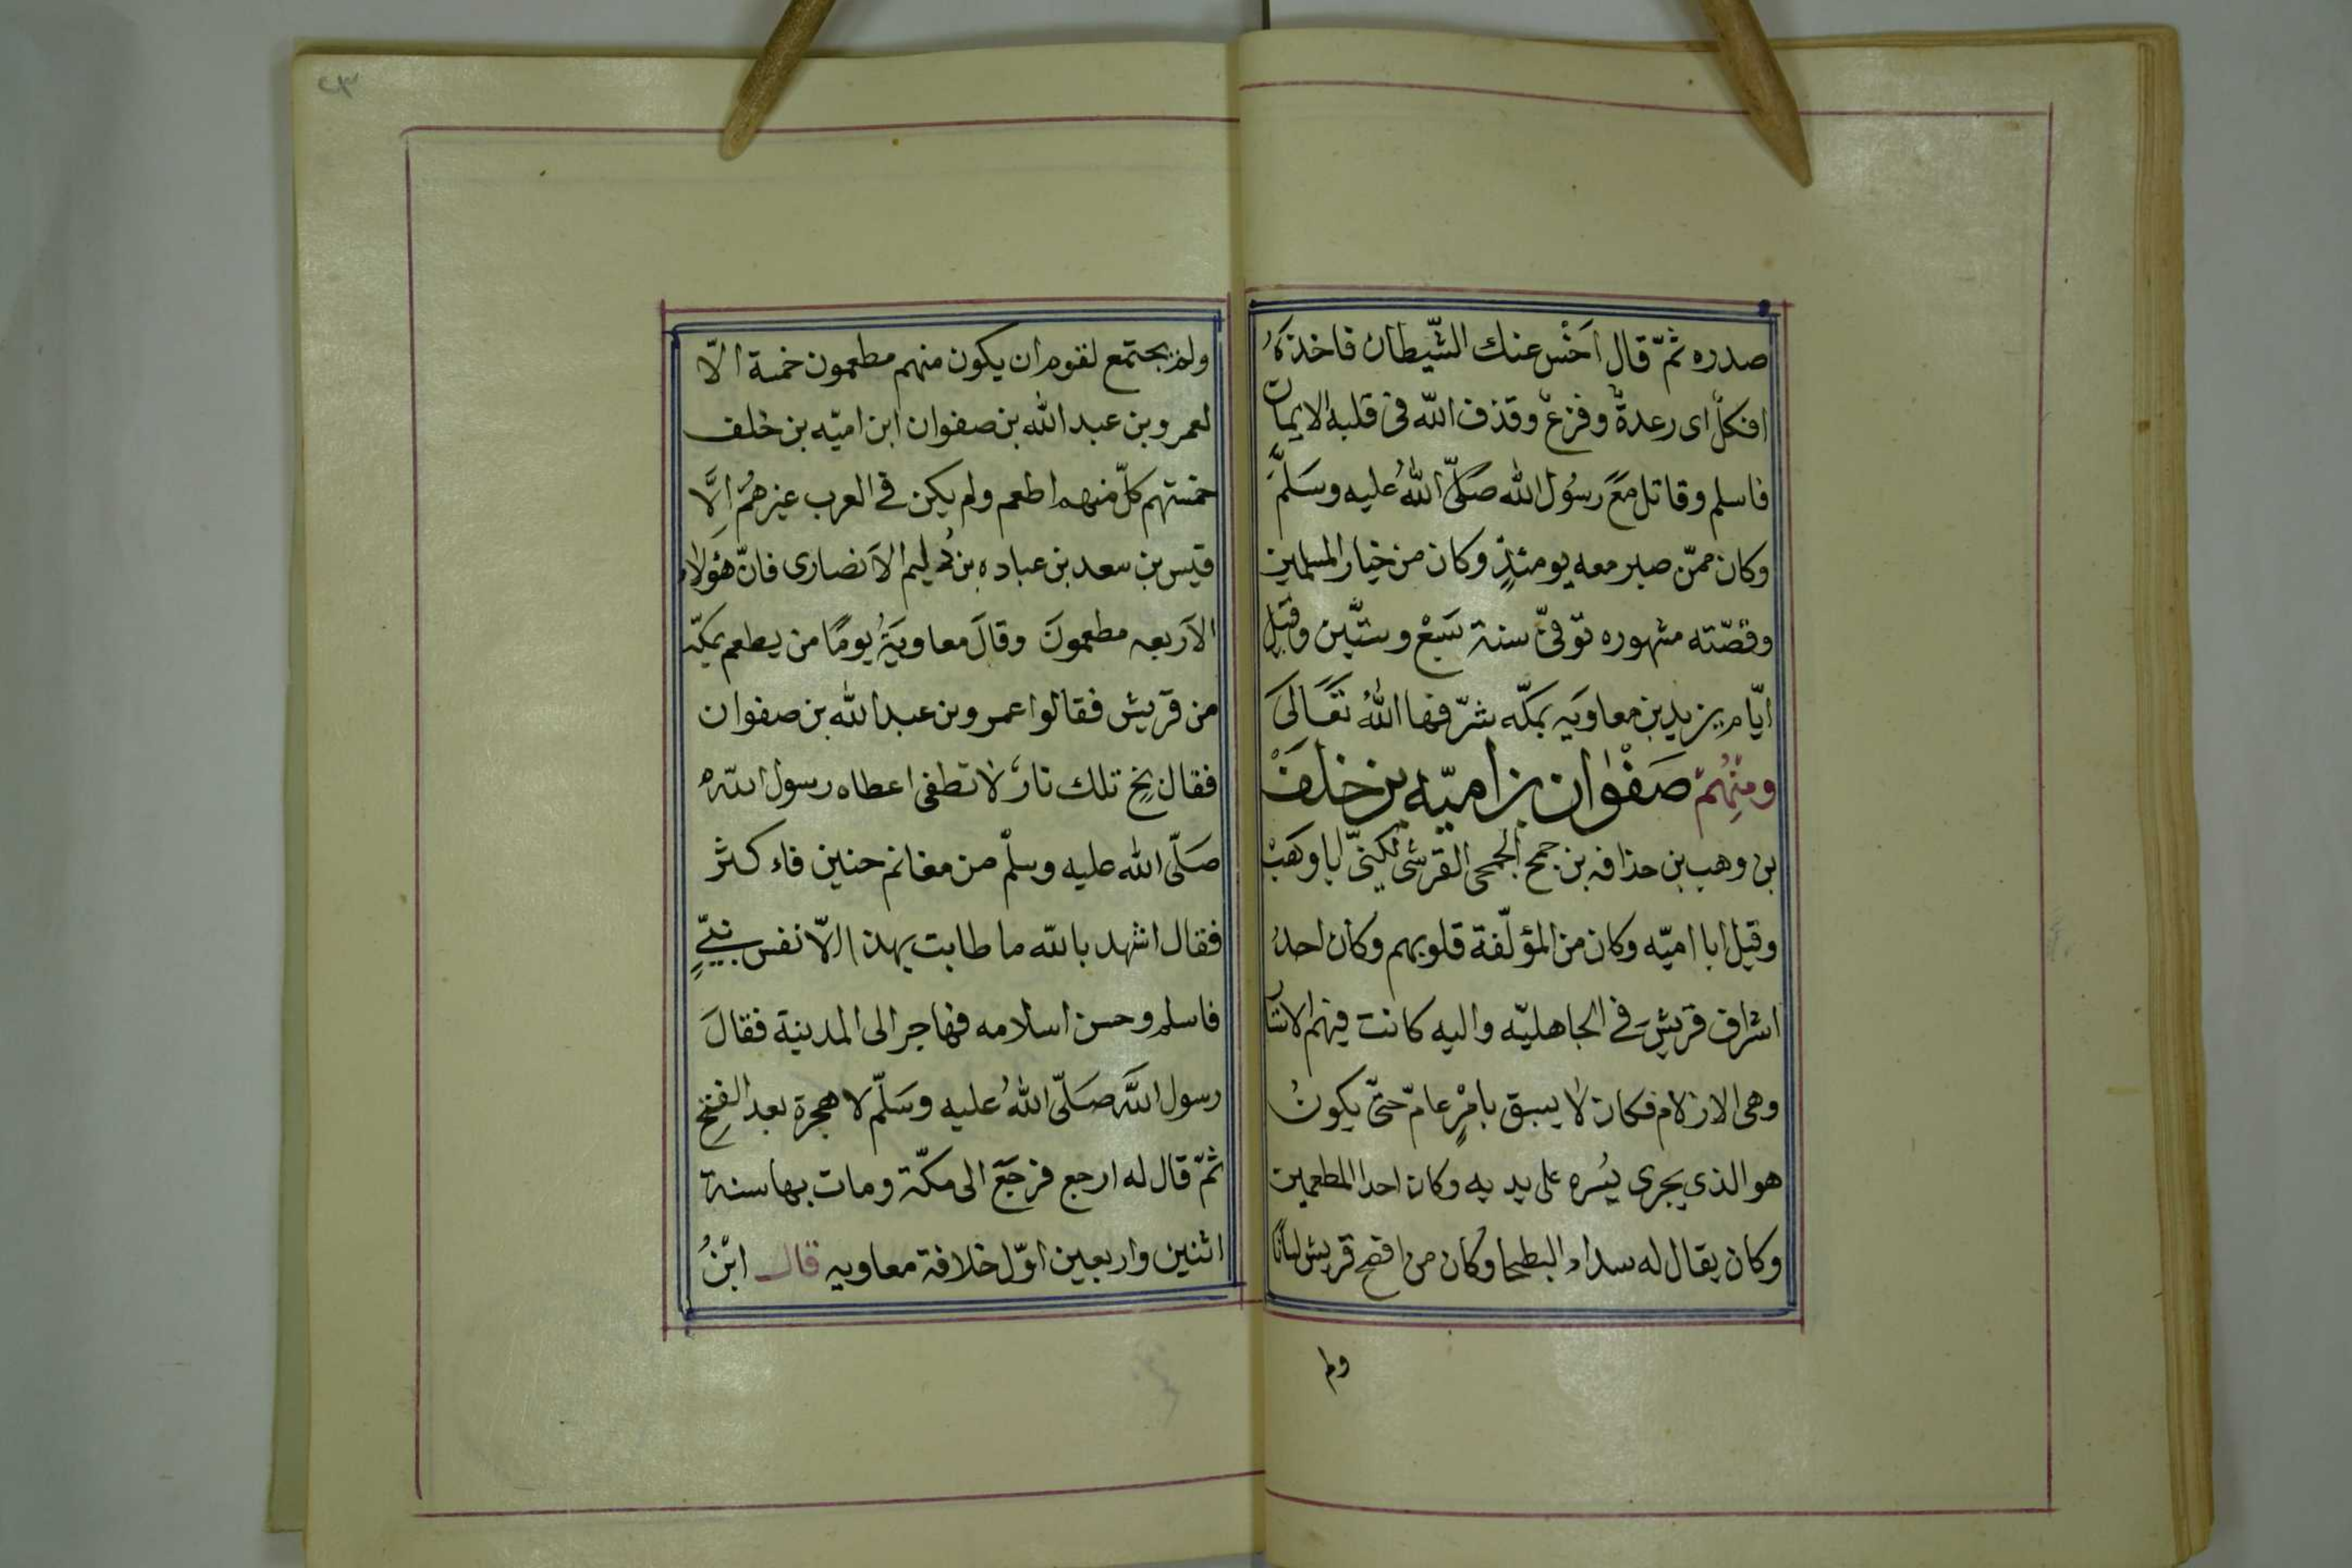 صدره ثمّ قال اَخْس عنك الشّيطان فاخذهُ
افكلٌ اى رعدةٌ وفزعٌ وقذف الله فى قلبه الايمان
فاسلم وقاتل مَعَ رسُول الله صَلّى اللهُ عليه وسَلَّمَ
وكان ممّن صبر معه يومئذٍ وكان من خيار المسلمين
وقصّته مشهوره توّفىّ سنة تسَعْ وستَّين وقيل
ايّام يزيد بن معاويه بمكّه شرّفها اللهُ تعَالىَ
ومنِهُمْ صَفْوان بن اميّه بن خلفَ
بن وهب بن حذافه بن جمح الجمحى القرشى يُكنىّ ابا وهَبْ
وقيل ابا اميّه وكان من المؤلّفة قلوبهم وكان احدُ
اشراف قريش فى الجاهليّه واليه كانت فيهم الايسار
وهى الازلام فكان لا يسبق بامْرٍ عامّ حتىّ يكونُ
هو الذى يجرى يُسره على يديه وكان احد المطعمين
وكان يقال له سداد البطحا وكان من افصح قريش لسانًا
ولم
٤٣
ولم يجتمع لقوم ان يكون منهم مطعمون خمسة الّا
لعمرو بن عبد الله بن صفوان ابن اميّه بن خلف
خمستهم كلّ منهم اطعم ولم يكن فى العرب غيرهُم اِلَّا
قيس بن سعد بن عباده بن دُليم الاَنصارى فانّ هؤلاء
الاَربعه مطعمونَ وقالَ معاويَةُ يومًا من يطعم بمكّه
من قريش فقالوا عمرو بن عبد الله بن صفوان
فقال بخ تلك نارٌ لا تطفى اعطاه رسول اللهِ
صَلّى الله عليه وسلمْ من مغانم حنين فاء كثر
فقال اشهد بالله ما طابت بهذا الّا نفس نبىٍّ
فاسلم وحسن اسلامه فهاجر الى المدينة فقالَ
رسول اللهَّ صَلّى اللهُ عليه وسَلّم لا هجرة بعد الفتحِ
ثمّ قال له ارجع فرجَعَ الى مكّة ومات بها سنة
اثنين واربعين اوّل خلافة معاويه قال ابنُ